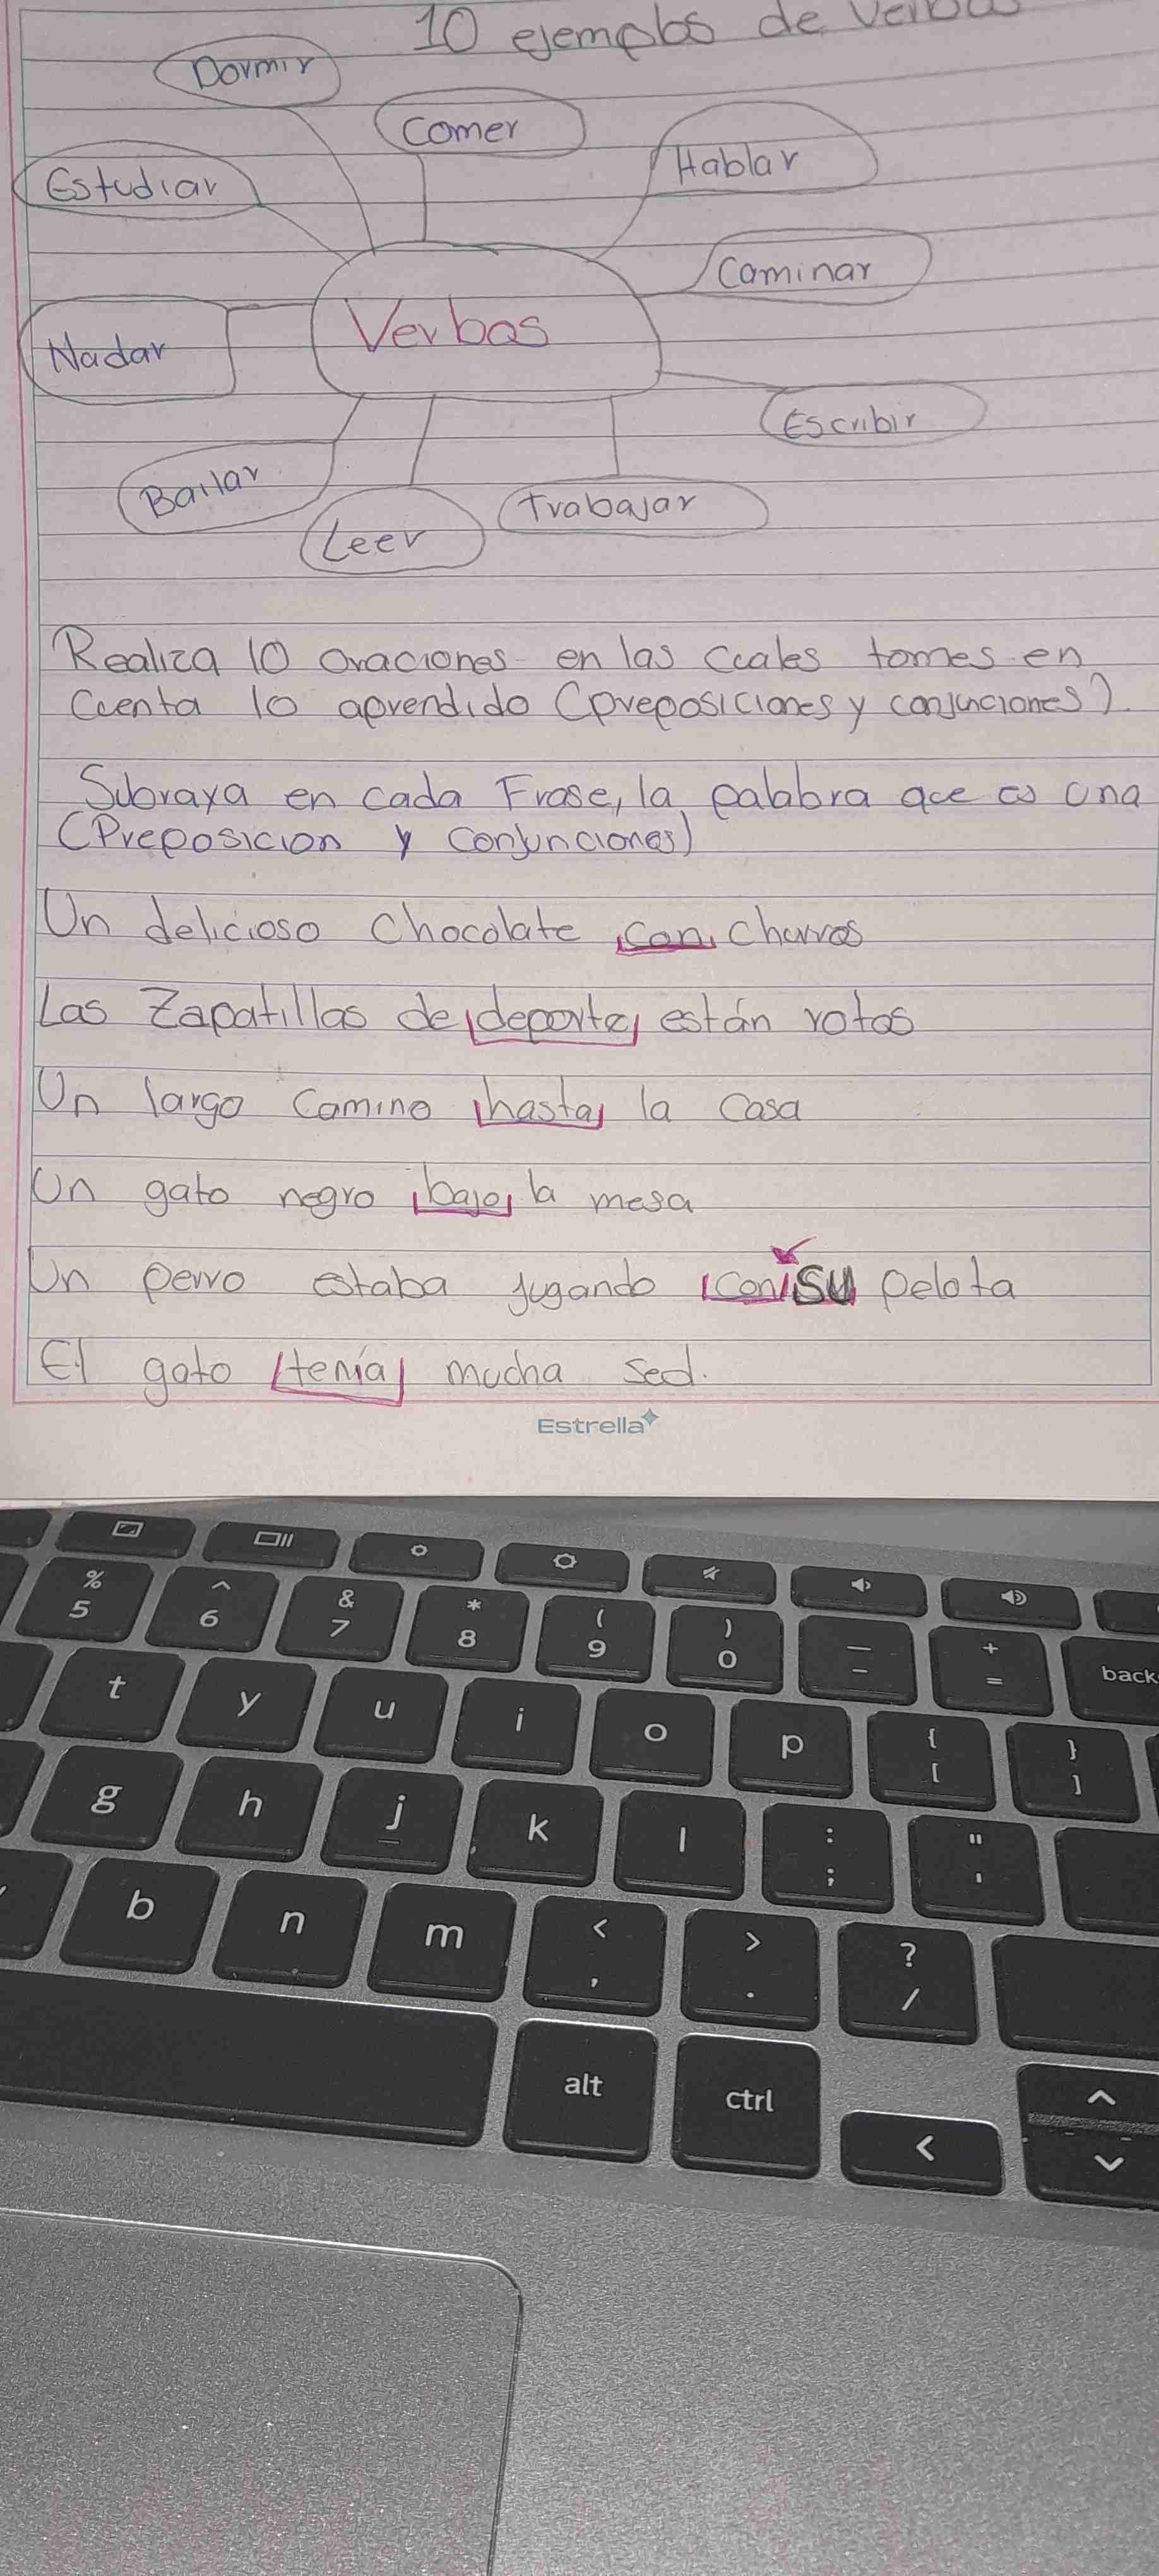 10 ejemplos de Verbos
Dormir
Comer
Hablar
Estudiar
Caminar
Verbos
Nadar
Escribir
Bailar
Trabajar
Leer
Realiza 10 oraciones en las cuales tomes en
cuenta lo aprendido (preposiciones y conjunciones).
Subraya en cada Frase, la palabra que es una
(Preposicion y conjunciones)
Un delicioso chocolate con churros
Las Zapatillas de deporte están rotas
Un largo camino hasta la casa
Un gato negro bajo la mesa
Un perro estaba jugando con su pelota
El gato tenía mucha sed.
Estrella
% 5 ^ 6 & 7 * 8 ( 9 ) 0 — - + = back
t y u i o p { [ } ]
g h j k l : ; " '
b n m < , > . ? /
alt ctrl